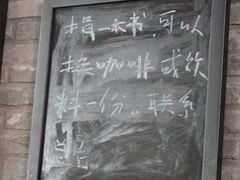 捐一本书,可以
换咖啡或饮
料一份。联系
总台